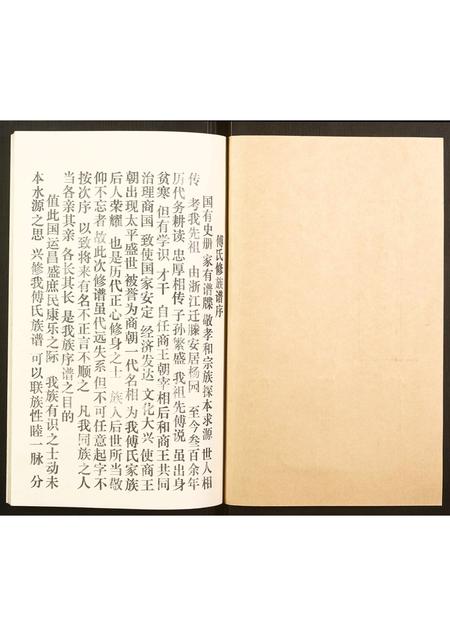 傅氏修族谱序
国有史册 家有谱牒 敬孝和宗族探本求源 世人相
传 考我先祖 由浙江迁滕安居杨园 至今叁百余年
历代务耕读 忠厚相传 子孙繁盛 我祖先傅说 虽出身
贫寒 但有学识 才干 自任商王朝宰相后和商王共同
治理商国 致使国家安定 经济发达 文化大兴 使商王
朝出现太平盛世 被誉为商朝一代名相 为我傅氏家族
后人荣耀 也是历代正心修身之士 族人后世所当敬
仰不忘者 故此次修谱虽代远失系 但不可任意起字不
按次序 以致将来有名不正言不顺之 凡我同族之人
当各亲其亲 各长其长 是我族序谱之目的
值此国运昌盛庶民康乐之际 我族有识之士动未
本水源之思 兴修我傅氏族谱 可以联族性睦一脉 分